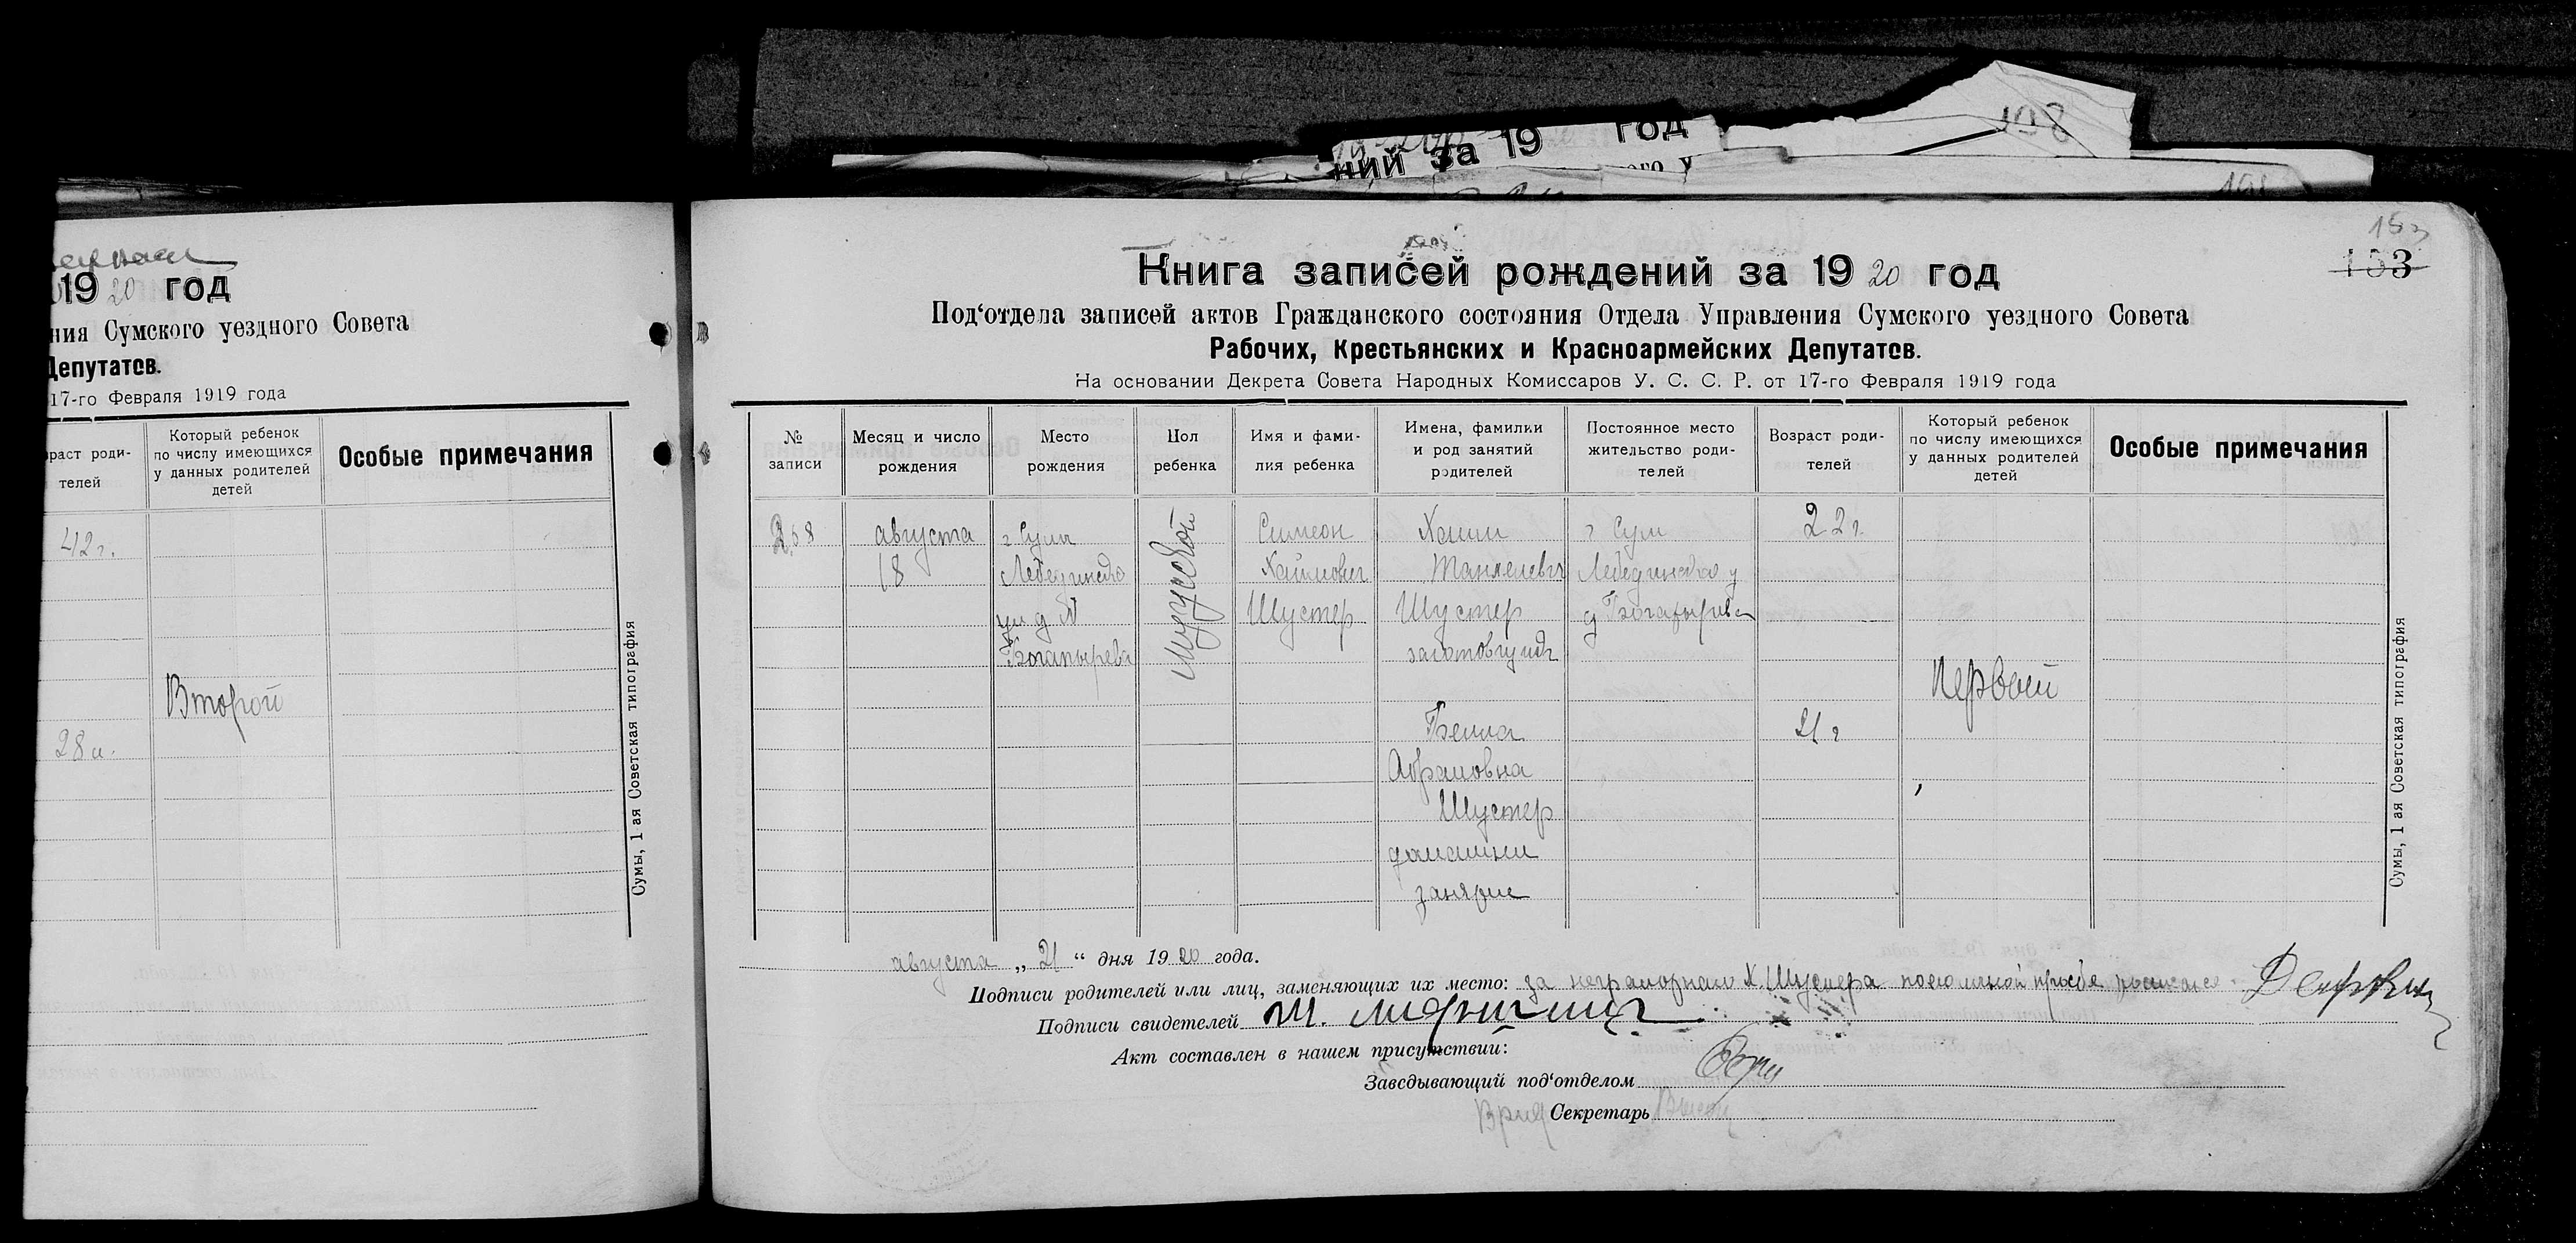 198
ний за 19 год
19 20 год
ния Сумского уездного Совета
Депутатов.
17-го Февраля 1919 года
раст роди-
телей
Который ребенок
по числу имеющихся
у данных родителей
детей
Особые примечания
42 г.
Второй
28 л.
Сумы, 1 ая Советская типография
153
133
Книга записей рождений за 19 20 год
Под‘отдела записей актов Гражданского состояния Отдела Управления Сумского уездного Совета
Рабочих, Крестьянских и Красноармейских Депутатов.
На основании Декрета Совета Народных Комиссаров У. С. С. Р. от 17-го Февраля 1919 года
№
записи
Месяц и число
рождения
Место
рождения
Пол
ребенка
Имя и фами-
лия ребенка
Имена, фамилии
и род занятий
родителей
Постоянное место
жительство роди-
телей
Возраст роди-
телей
Который ребенок
по числу имеющихся
у данных родителей
детей
Особые примечания
268
августа
18
г Сумы
Лебединска
ул д №
Богатырева
мужской
Симеон
Хаимович
Шустер
Хаим
Шустер
Бейла
Абрамовна
Шустер
домашни
занятие
г Сум
Лебединская у
д Богатырева
22 г.
21 г
Первый
Сумы, 1 ая Советская типография
августа „ 21 “ дня 19 20 года.
Подписи родителей или лиц, заменяющих их место: за неграмотного Х. Шустера по его личной просьбе
Подписи свидетелей
Акт составлен в нашем присутствии:
Заведывающий под‘отделом
Врид Секретарь